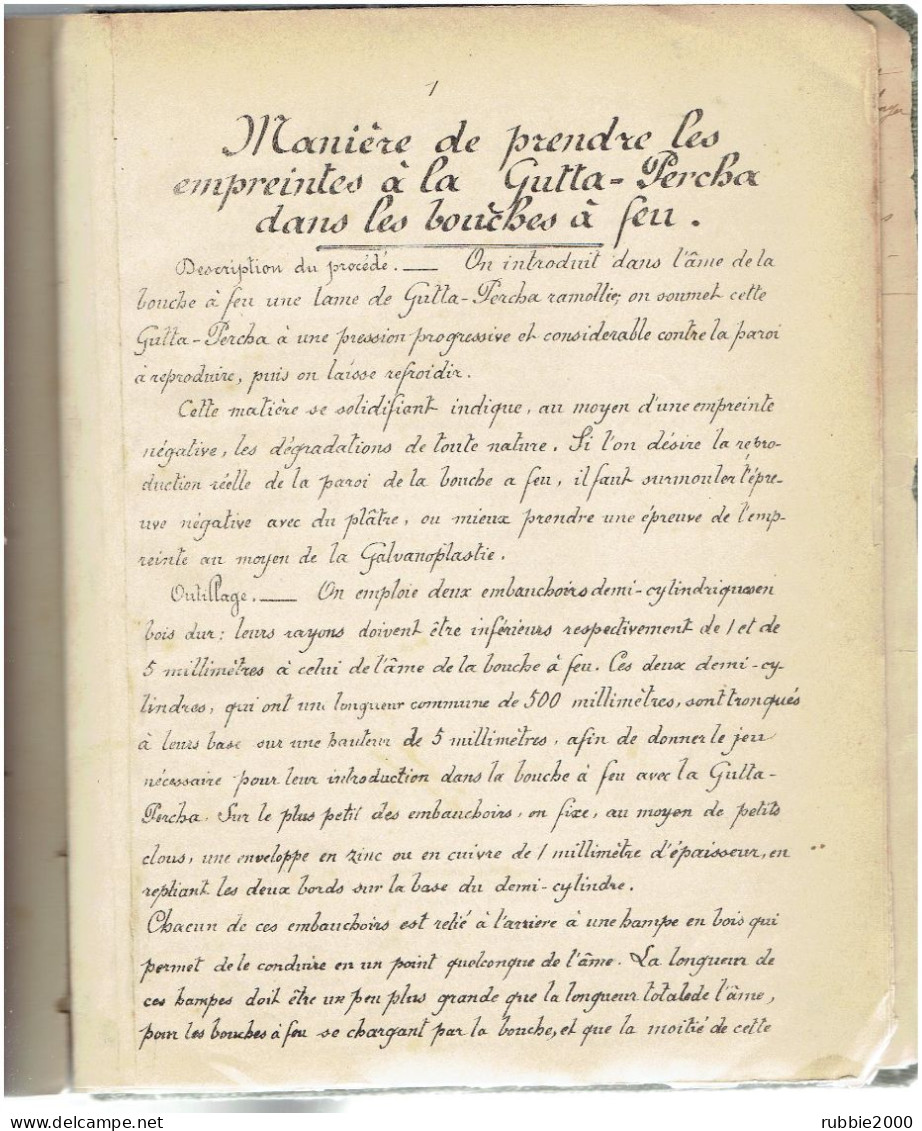 1
Manière de prendre les
empreintes à la Gutta-Percha
dans les bouches à feu.
Description du procédé. — On introduit dans l'âme de la
bouche à feu une lame de Gutta-Percha ramollie; on soumet cette
Gutta-Percha à une pression progressive et considerable contre la paroi
à reproduire, puis on laisse refroidir.
Cette matière se solidifiant indique, au moyen d'une empreinte
négative, les dégradations de toute nature. Si l'on désire la repro-
duction réelle de la paroi de la bouche a feu, il faut surmouler l'épreu-
ve négative avec du plâtre, ou mieux prendre une épreuve de l'emp-
reinte au moyen de la Galvanoplastie.
Outillage. — On emploie deux embauchoirs demi-cylindriques en
bois dur: leurs rayons doivent être inférieurs respectivement de 1 et de
5 millimètres à celui de l'âme de la bouche à feu. Ces deux demi-cy-
lindres, qui ont une longueur commune de 500 millimètres, sont tronqués
à leurs base sur une hauteur de 5 millimètres, afin de donner le jeu
nécessaire pour leur introduction dans la bouche à feu avec la Gutta-
Percha. Sur le plus petit des embauchoirs, on fixe, au moyen de petits
clous, une enveloppe en zinc ou en cuivre de 1 millimètre d'épaisseur, en
repliant les deux bords sur la base du demi-cylindre.
Chacun de ces embauchoirs est relié à l'arrière à une hampe en bois qui
permet de le conduire en un point quelconque de l'âme. La longueur de
ces hampes doit être un peu plus grande que la longueur totale de l'âme,
pour les bouches à feu se chargant par la bouche, et que la moitié de cette
rubbie2000